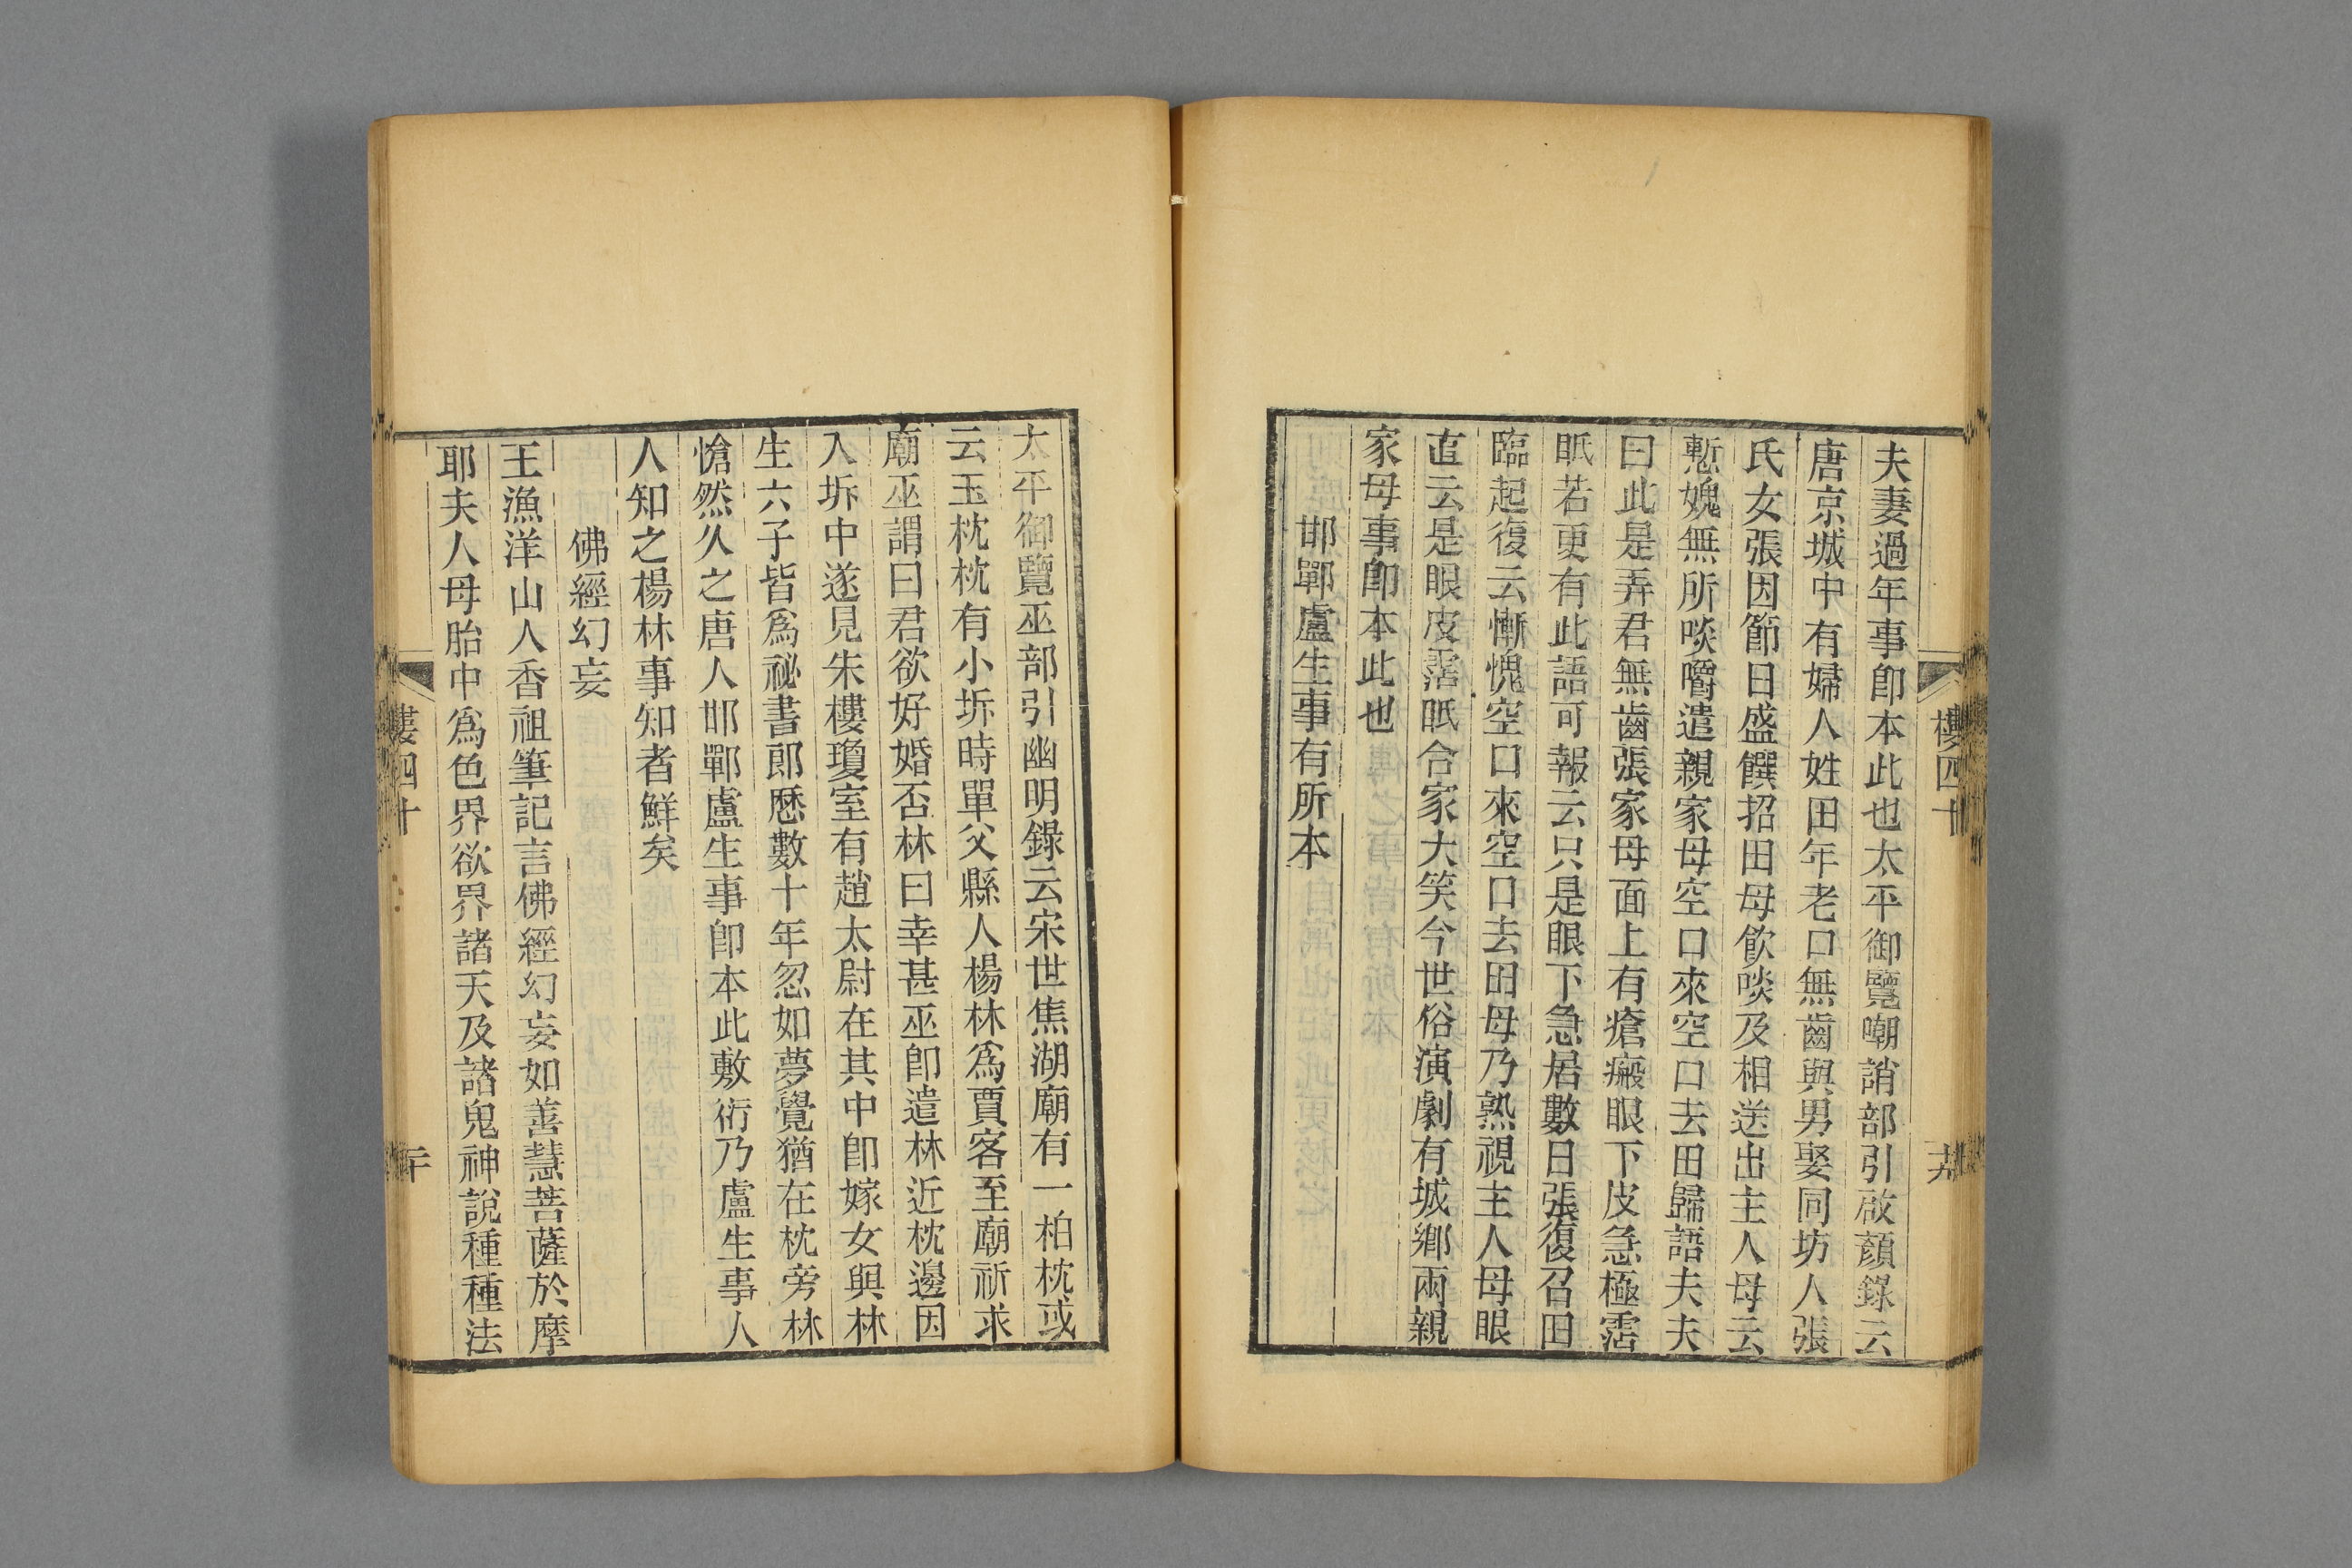 樓四十
十九
夫妻過年事卽本此也太平御覽嘲誚部引啟顏錄云
唐京城中有婦人姓田年老口無齒與男娶同坊人張
氏女張因節日盛饌招田母飮啖及相送出主人母云
慙媿無所啖嚼遣親家母空口來空口去田歸語夫夫
曰此是弄君無齒張家母面上有瘡瘢眼下皮急極霑
眂若更有此語可報云只是眼下急居數日張復召田
臨起復云慚愧空口來空口去田母乃熟視主人母眼
直云是眼皮霑眂合家大笑今世俗演劇有城鄉兩親
家母事卽本此也
邯鄲盧生事有所本
太平御覽巫部引幽明錄云宋世焦湖廟有一柏枕或
云玉枕枕有小坼時單父縣人楊林爲賈客至廟祈求
廟巫謂曰君欲好婚否林曰幸甚巫卽遣林近枕邊因
入坼中遂見朱樓瓊室有趙太尉在其中卽嫁女與林
生六子皆爲祕書郎歷數十年忽如夢覺猶在枕旁林
愴然久之唐人邯鄲盧生事卽本此敷衍乃盧生事人
人知之楊林事知者鮮矣
佛經幻妄
王漁洋山人香祖筆記言佛經幻妄如善慧菩薩於摩
耶夫人母胎中爲色界欲界諸天及諸鬼神說種種法
樓四十
二十